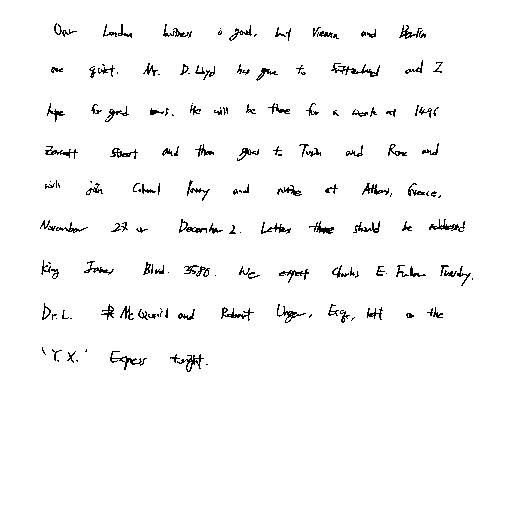 Our London business is good, but Vienna and Berlin
are quiet. Mr. D. Lloyd has gone to Switzerland and I
hope for good news. He will be there for a week at 1496
Zermott Street and then goes to Turin and Rome and
will join Colonel Parry and arrive at Athens, Greece,
November 27 or December 2. Letters there should be addressed
King James Blvd. 3580. We expect Charles E. Fuller Tuesday.
Dr. L. McQuaid and Robert Unger, Esq., left on the
'Y.X.' Express tonight.